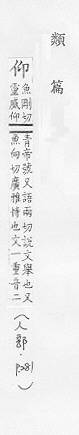 類篇
仰
魚剛切
靈威仰
青帝號又語兩切說文舉也又
魚向切廣雅博也文一重音二
(人部·p281)